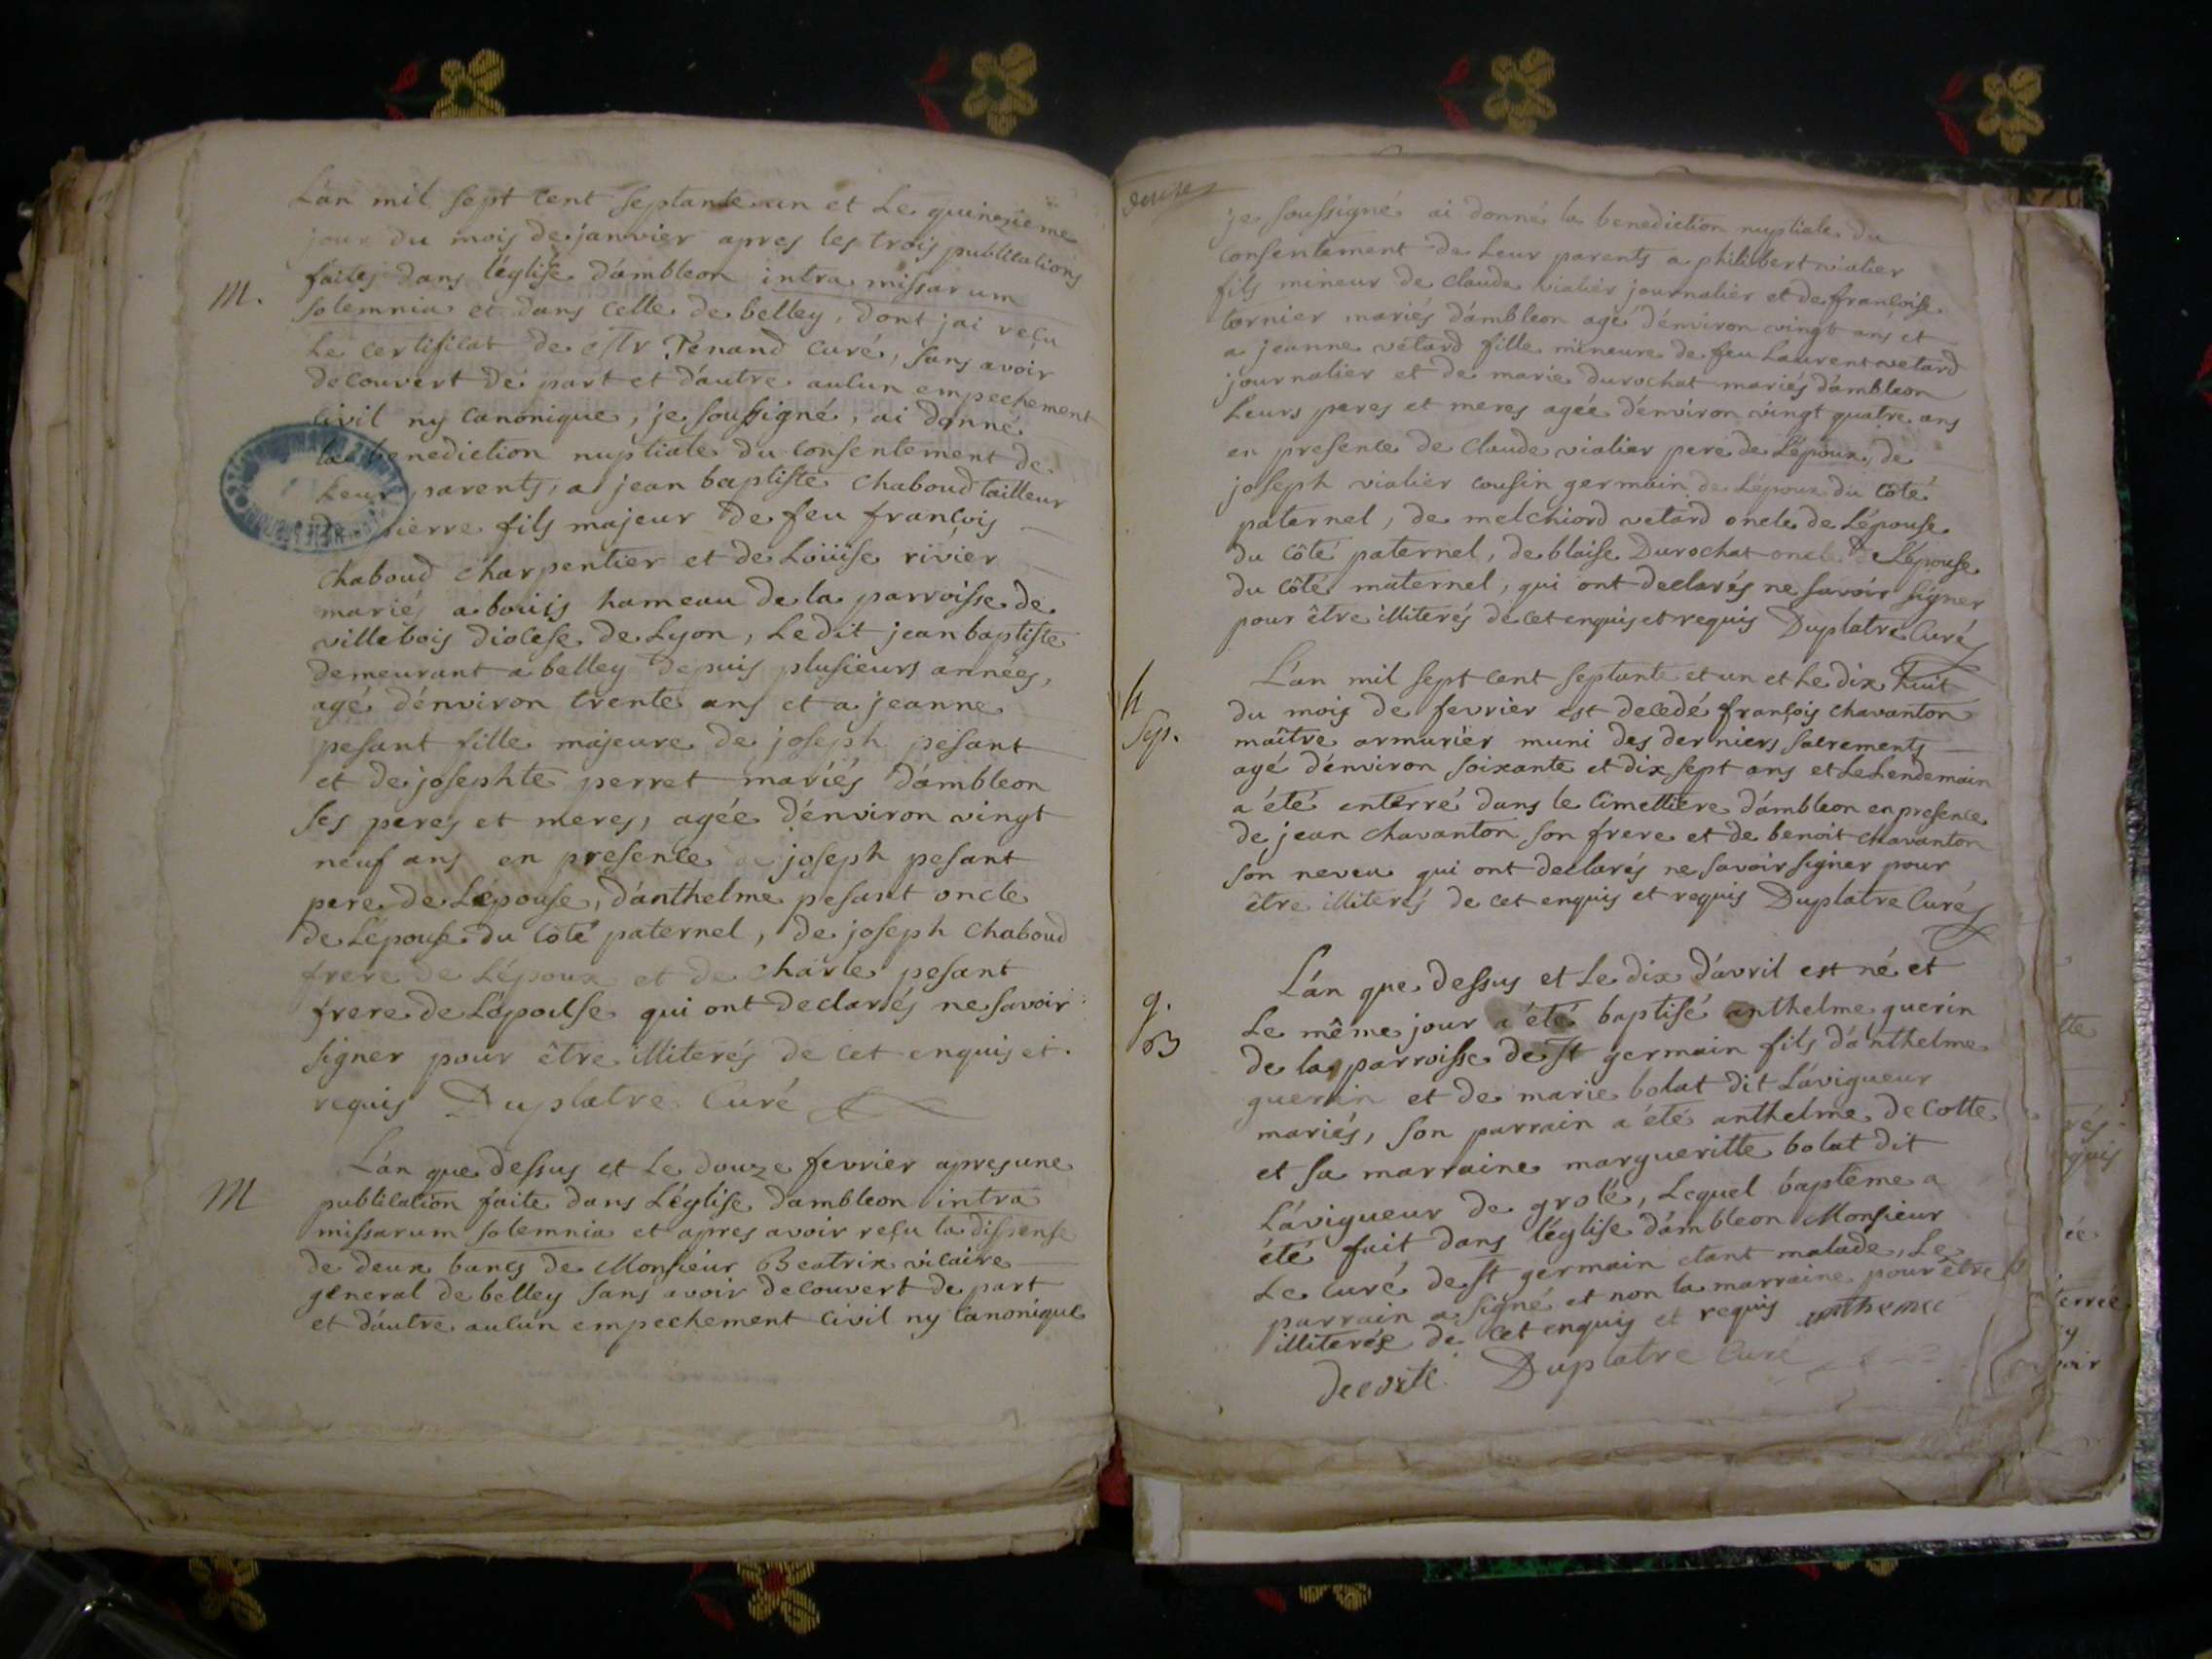 L'an mil sept cent septante un et le quinzieme
jour du mois de janvier apres les trois publications
faites dans l'église d'ambleon intra missarum
M.
solemnia et dans celle de belley, dont jai reçu
Le certificat de Mr Tenand curé, sans avoir
decouvert de part et d'autre aucun empechement
civil ny canonique, je soussigné, ai donné
la benediction nuptiale du consentement de
Leur parents, a jean baptiste chaboud tailleur
de pierre fils majeur de feu françois
chaboud charpentier et de Loüise rivier
mariés a bouis hameau de la parroisse de
villebois diocese de Lyon, Ledit jean baptiste
demeurant a belley depuis plusieurs années,
agé d'environ trente ans et a jeanne
pesant fille majeure de joseph pesant
et de josephte perret mariés d'ambleon
ses peres et meres, agée d'environ vingt
neuf ans en presence de joseph pesant
pere de Lépouse, d'anthelme pesant oncle
de Lépouse du côté paternel, de joseph chaboud
frere de Lépoux et de charle pesant
frere de Lépouse qui ont declarés ne savoir
signer pour être illiterés de cet enquis et
requis Duplatre Curé
L'an que dessus et le douze fevrier apres une
M
publication faite dans L'église d'ambleon intra
missarum solemnia et apres avoir reçu la dispense
de deux bancs de Monsieur Beatrix vicaire
general de belley sans avoir decouvert de part
et d'autre aucun empechement civil ny canonique
je soussigné ai donné la benediction nuptiale du
consentement de Leur parents a philibert vialier
fils mineur de claude vialier journalier et de françoise
tornier mariés d'ambleon agé d'environ vingt ans et
a jeanne vetard fille mineure de feu Laurent vetard
journalier et de marie durochat mariés d'ambleon
Leurs peres et meres agée d'environ vingt quatre ans
en presence de claude vialier pere de Lépoux, de
joseph vialier cousin germain de Lépoux du côté
paternel, de melchiord vetard oncle de Lépouse
du côté paternel, de blaise Durochat oncle de Lépouse
du côté maternel, qui ont declarés ne savoir signer
pour être illiterés de cet enquis et requis Duplatre Curé
L'an mil sept cent septante et un et le dix huit
du mois de fevrier est decedé françois chavanton
Sep.
maître armurier muni des derniers sacrements
agé d'environ soixante et dix sept ans et Le Lendemain
a été enterré dans le cimettiere d'ambleon en presence
de jean chavanton son frere et de benoit chavanton
son neveu qui ont declarés ne savoir signer pour
être illiterés de cet enquis et requis Duplatre Curé
L'an que dessus et le dix d'avril est né et
g.
Le même jour a été baptisé anthelme guerin
B
de la parroisse de st germain fils d'anthelme
guerin et de marie bolat dit Lavigueur
mariés, son parrain a été anthelme decotte
et sa marraine margueritte bolat dit
Lavigueur de grolé, Lequel baptême a
été fait dans l'église d'ambleon Monsieur
Le curé de st germain etant malade, Le
parrain a signé et non la marraine pour être
illiterée de cet enquis et requis anthelme
decotte Duplatre Curé